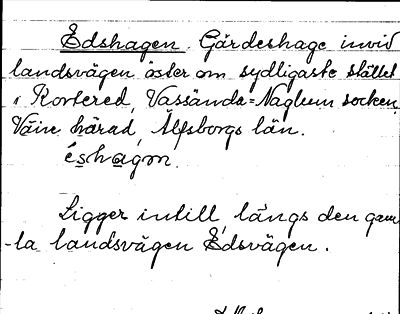 Edshagen. Gärdeshage invid
landsvägen öster om sydligaste stället
i Kortered, Vassända=Naglum socken,
Väne härad, Älfsborgs län.
éshagon.
Ligger intill, längs den gam
-la landsvägen Edsvägen.